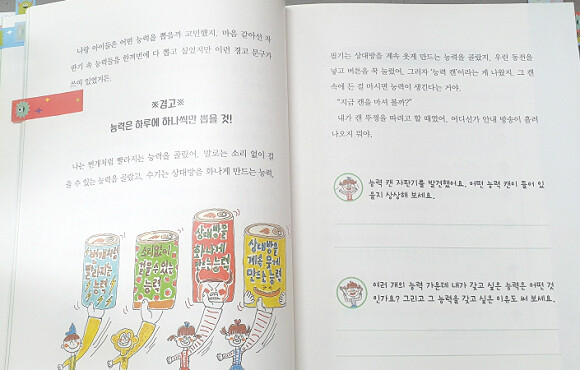 나랑 아이들은 어떤 능력을 뽑을까 고민했지. 마음 같아선 자
판기 속 능력들을 한꺼번에 다 뽑고 싶었지만 이런 경고 문구가
쓰여 있었거든.
※경고※
능력은 하루에 하나씩만 뽑을 것!
나는 번개처럼 빨라지는 능력을 골랐어. 말로는 소리 없이 걸
을 수 있는 능력을 골랐고, 수기는 상대방을 화나게 만드는 능력,
빨라지는
능력
소리없이
걸을 수 있는
능력
상대방을
화나게
만드는 능력
상대방을
계속 웃게
만드는 능력
찐기는 상대방을 계속 웃게 만드는 능력을 골랐지. 우린 동전을
넣고 버튼을 꾹 눌렀어. 그러자 '능력 캔'이라는 게 나왔지. 그 캔
속에 든 걸 마시면 능력이 생긴다는 거야.
"지금 캔을 마셔 볼까?"
내가 캔 뚜껑을 따려고 할 때였어. 어디선가 안내 방송이 흘러
나오지 뭐야.
능력 캔 자판기를 발견했어요. 어떤 능력 캔이 들어 있
을지 상상해 보세요.
여러 개의 능력 가운데 내가 갖고 싶은 능력은 어떤 것
인가요? 그리고 그 능력을 갖고 싶은 이유도 써 보세요.